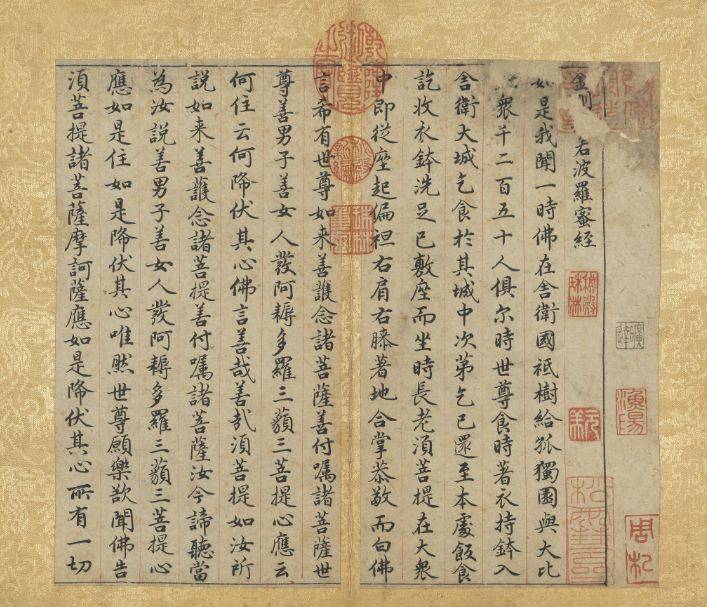 金若波羅蜜經
如是我聞一時佛在舍衛國祇樹給孤獨園與大比
衆千二百五十人俱尔時世尊食時著衣持鉢入
舍衛大城乞食於其城中次第乞已還至本處飯食
訖收衣鉢洗足已敷座而坐時長老湏菩提在大衆
中即從座起偏袒右肩右膝著地合掌恭敬而白佛
言希有世尊如来善護念諸菩薩善付囑諸菩薩世
尊善男子善女人發阿耨多羅三藐三菩提心應云
何住云何降伏其心佛言善哉善哉湏菩提如汝所
說如来善護念諸菩提善付囑諸菩薩汝今諦聽當
為汝說善男子善女人發阿耨多羅三藐三菩提心
應如是住如是降伏其心唯然世尊願樂欲聞佛告
湏菩提諸菩薩摩訶薩應如是降伏其心所有一切